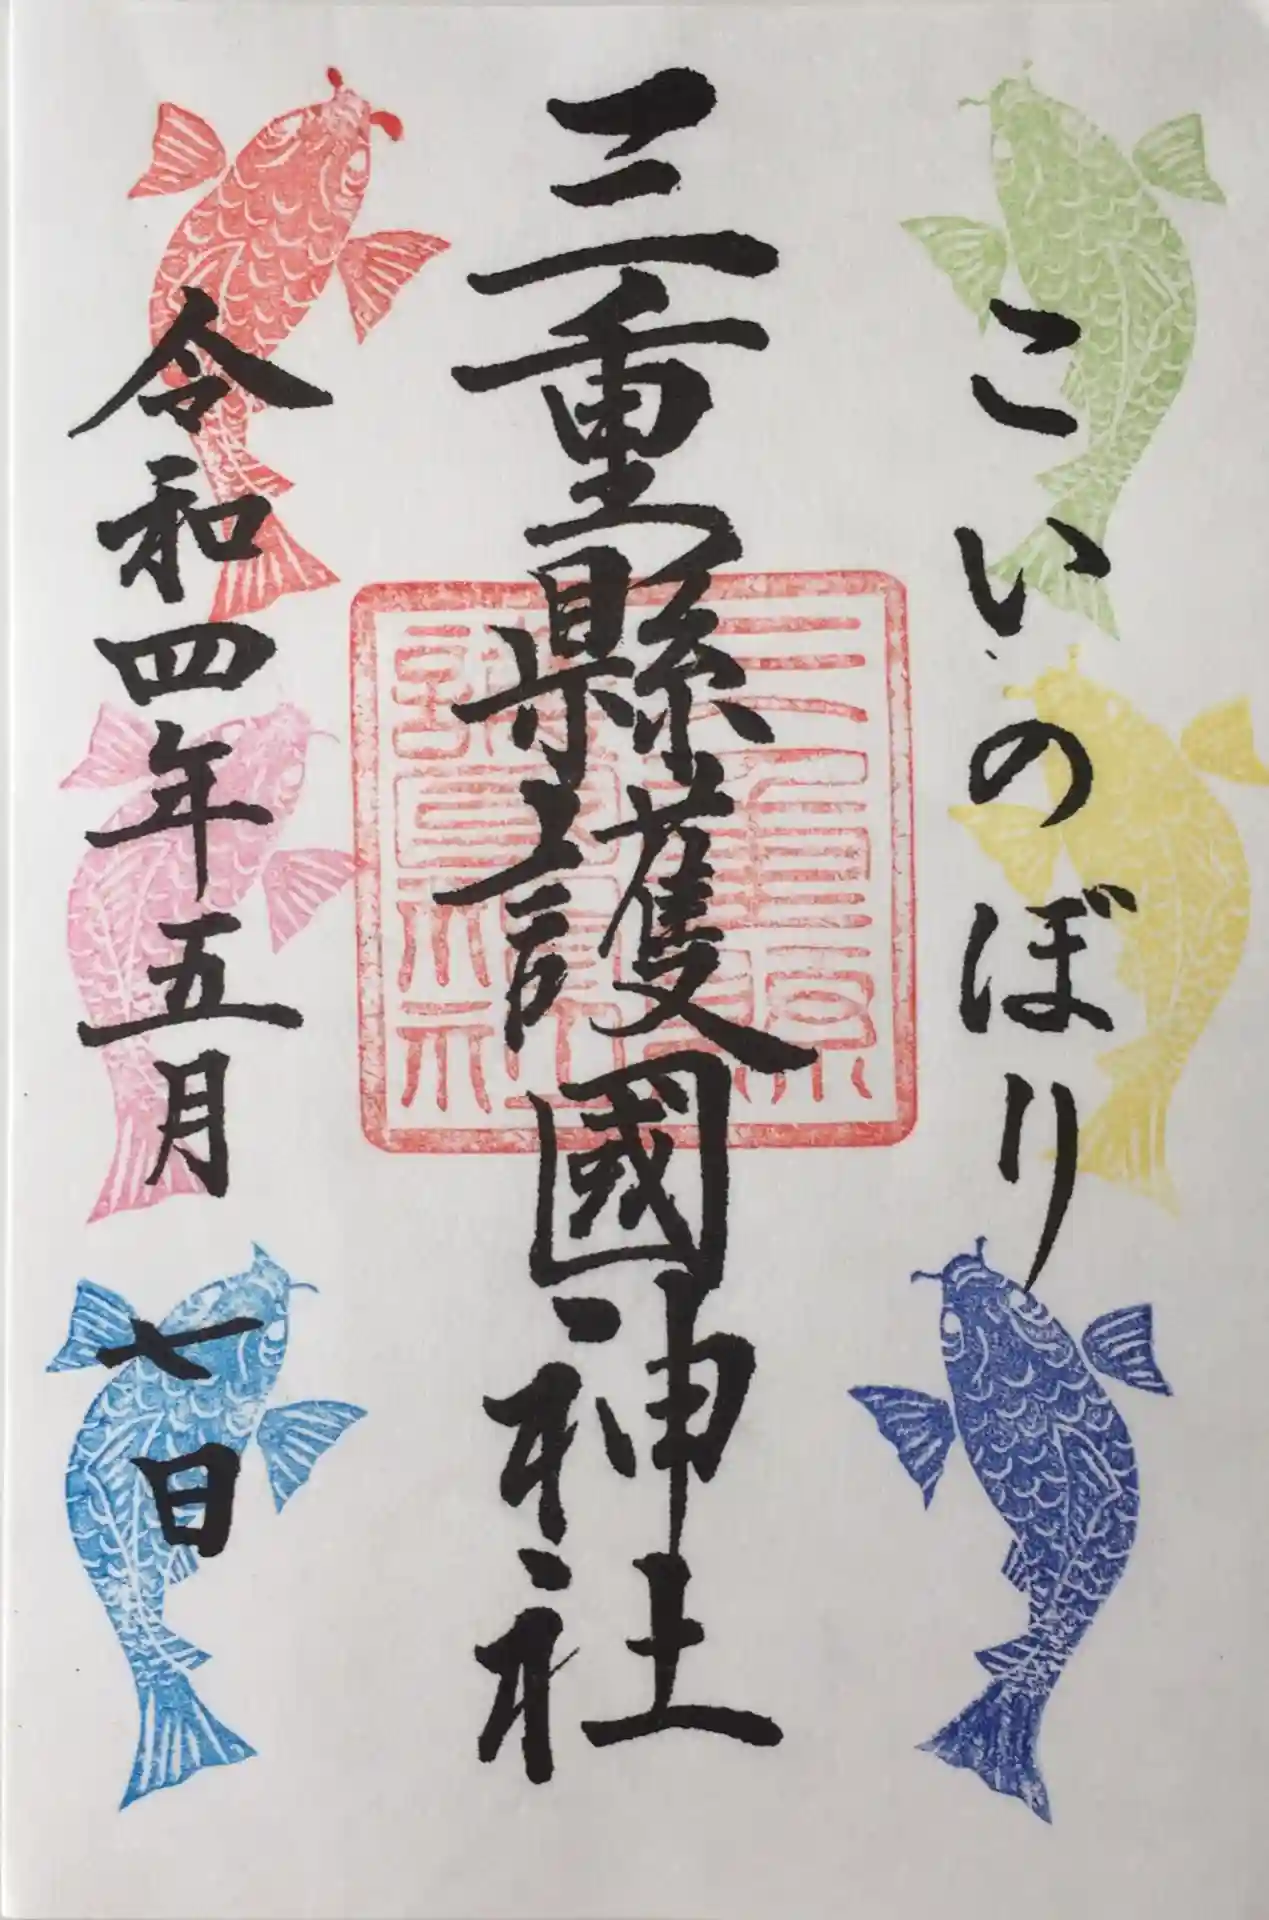 こいのぼり
三重縣護國神社
令和四年五月七日